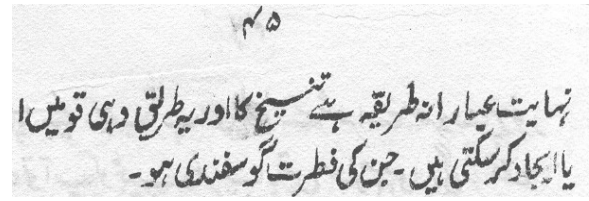 ۴۵
نہایت عیارانہ طریقہ ہے تنسیخ کا اور یہ طریق وہی قومیں ا
یا ایجاد کر سکتی ہیں۔ جن کی فطرت گوسفندی ہو۔